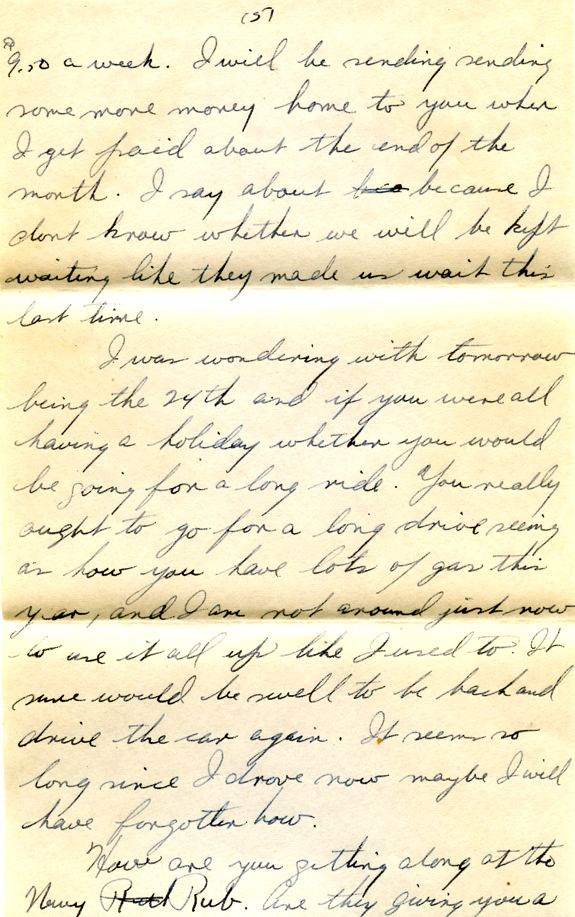 (5)
9.50 a week. I will be sending sending
some more money home to you when
I get paid about the end of the
month. I say about because I
dont know whether we will be kept
waiting like they made us wait this
last time.
I was wondering with tomorrow
being the 24th and if you were all
having a holiday whether you would
be going for a long ride. You really
ought to go for a long drive seeing
as how you have lots of gas this
year, and I am not around just now
to use it all up like I used to. It
sure would be swell to be back and
drive the car again. It seems so
long since I drove now maybe I will
have forgotten how.
How are you getting along at the
Navy Rub. Are they giving you a